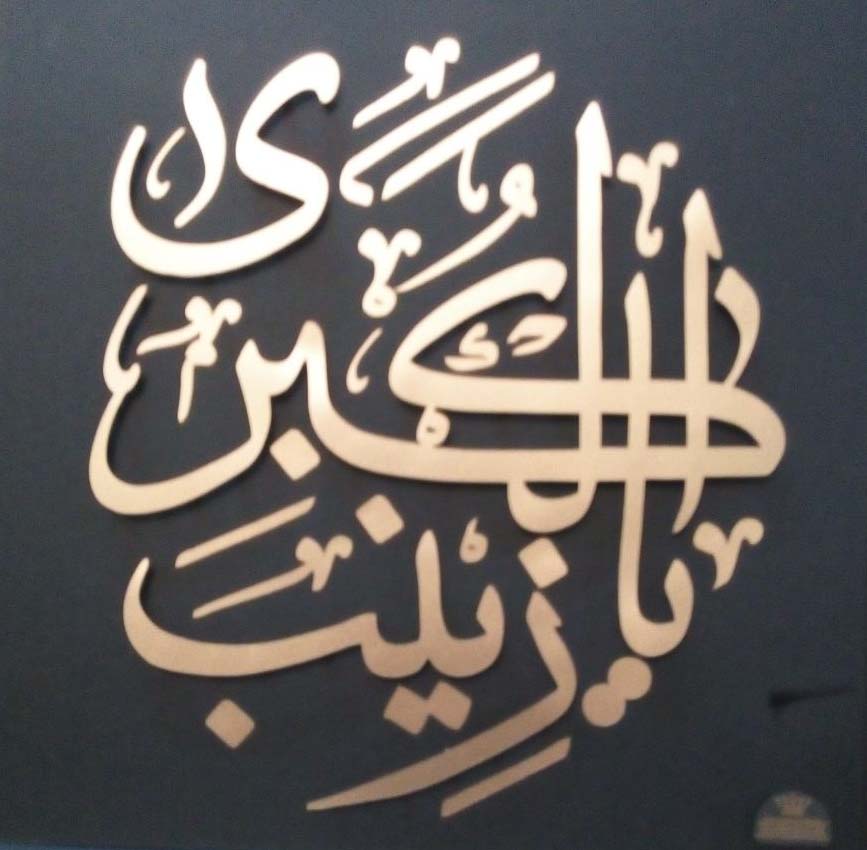 يا زينب
الكبرى